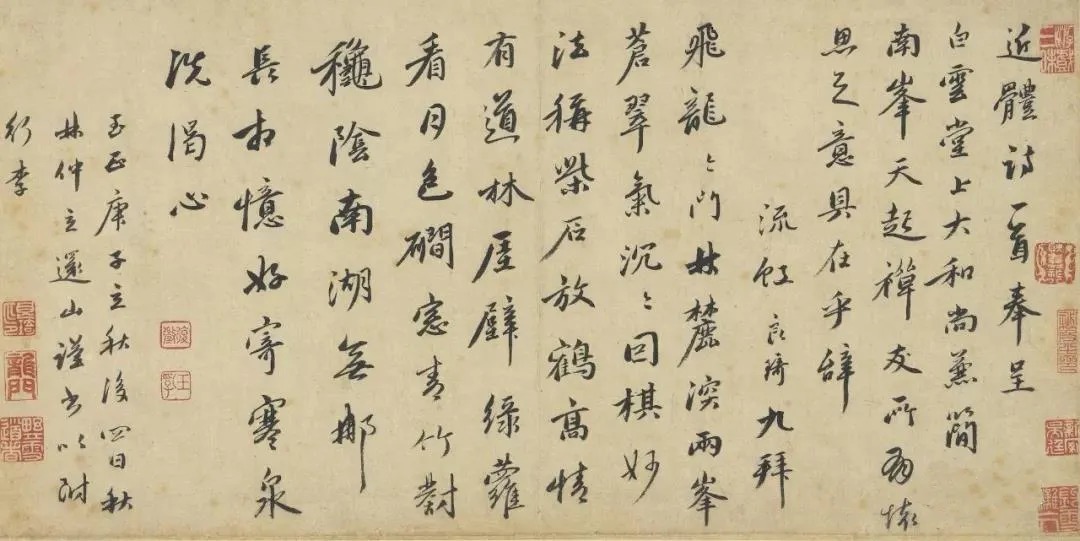 近體詩一首奉呈
白雲堂上大和尚兼簡
南峯天起禪友所懷
思之意具在乎辭
流虹 良琦九拜
飛龍〻門林麓深兩峯
蒼翠氣沉〻回棋妙
法稱石放鶴高情
有道林屋壁綠蘿
看月色磵窓青竹對
龝陰南湖無那
長相憶好寄寒泉
洗渴心
至正庚子立秋後四日秋
林仲立還山謹書以附
行李